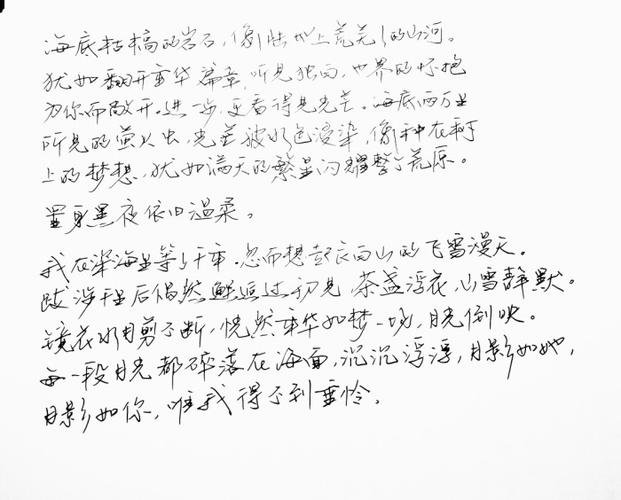 海底枯槁的岩石,像陆地上荒芜了的山河。
犹如翻开章华篇章,听见独白,世界的怀抱
为你而敞开,进一步,更看得见光芒。海底两万里
所见的萤火虫,光芒被水色浸染,像种在树
上的梦想,犹如满天的繁星闪耀整个荒原。
置身黑夜依旧温柔。
我在深海里等了千年,忽而想起长白山的飞雪漫天。
跋涉千里后偶然邂逅过初见,茶盏浮衣,山雪静默。
镜花水月剪不断,恍然年华如梦一场,月光倒映。
每一段月光都碎落在海面,沉沉浮浮,月影如她,
月影如你,唯我得不到垂怜。